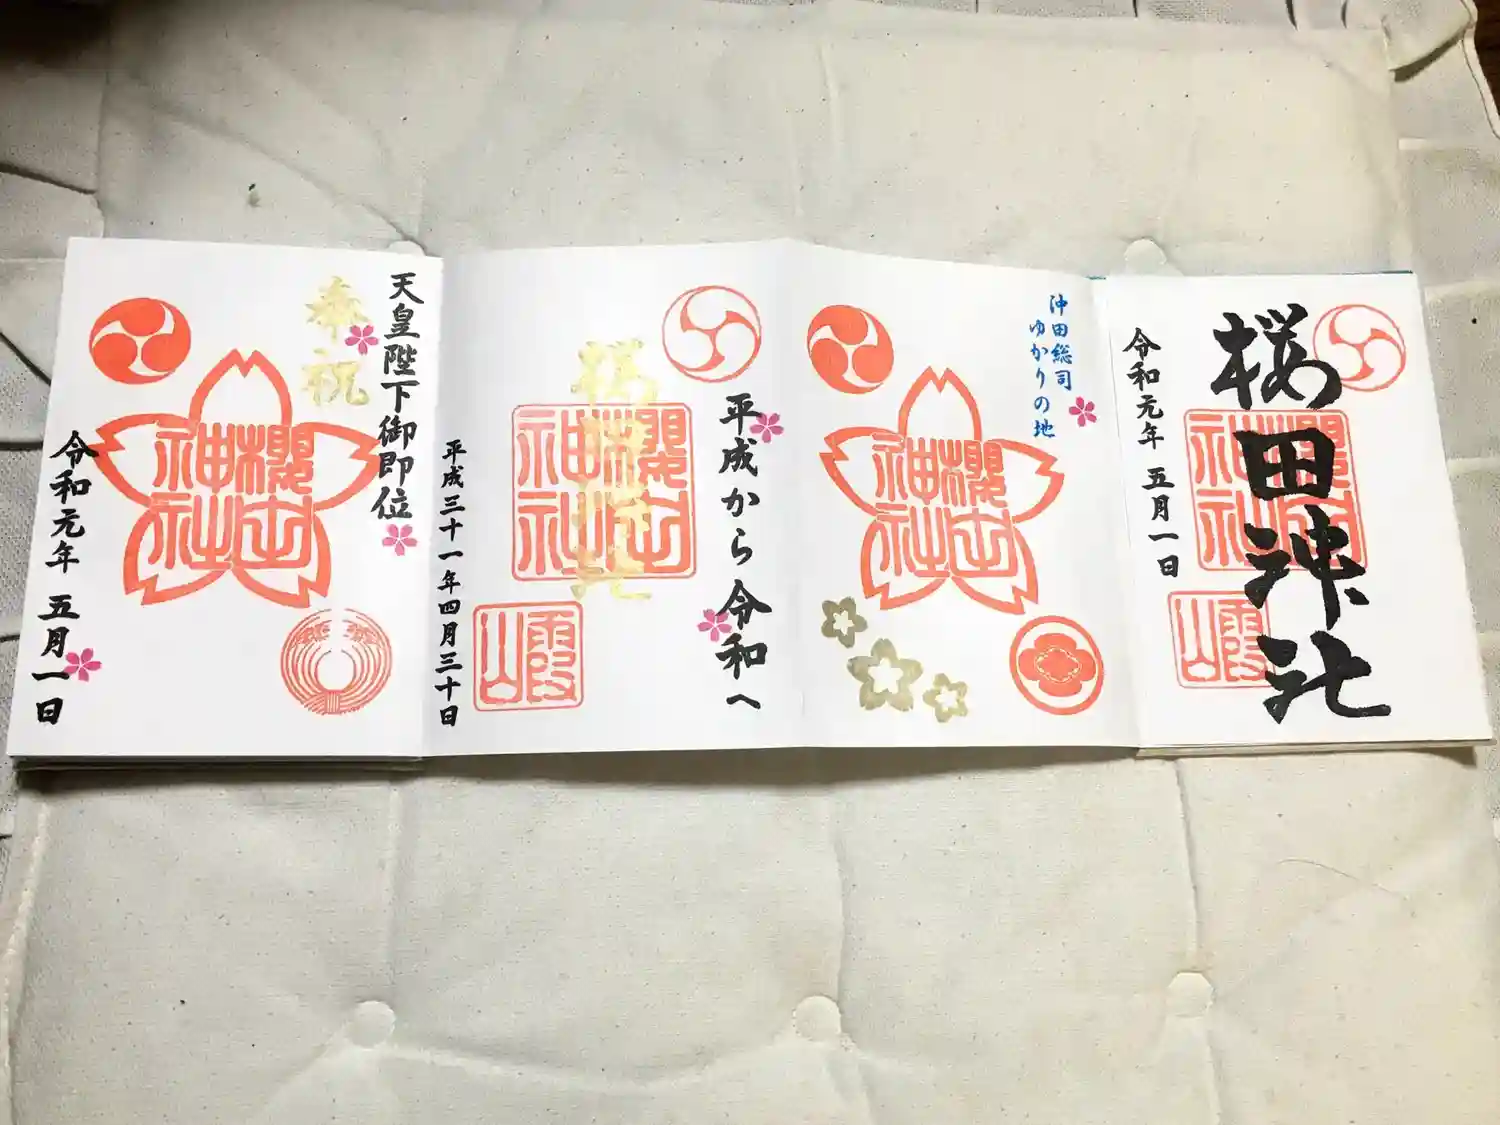 桜田神社
櫻田
神社
霞
山
令和元年 五月一日
沖田総司
ゆかりの地
櫻田
神社
平成から令和へ
桜田神社
櫻田
神社
霞
山
平成三十一年四月三十日
天皇陛下御即位
奉祝
櫻田
神社
令和元年 五月一日